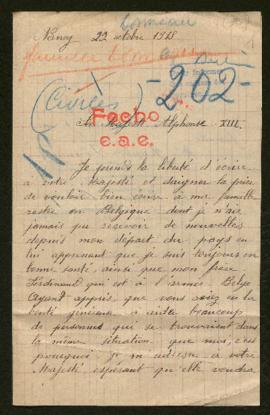 Nancy 22 octobre 1915
-202-
(Civiles)
Fecho
e.a.e.
Sa Majesté Alphonse XIII.
Je prends la liberté d'écrire
à votre Majesté et daigner la prier
de vouloir bien écrire à ma famille
restée en Belgique dont je n'ai
jamais pu recevoir de nouvelles
depuis mon départ du pays en
lui apprenant que je suis toujours en
bonne santé, ainsi que mon frère
Ferdinand qui est à l'armée Belge
Ayant appris que vous avez eu la
bonté généreuse à aider beaucoup
de personnes qui se trouvaient dans
la même situation que moi, c'est
pourquoi je m'adresse à votre
Majesté espérant qu'elle voudra